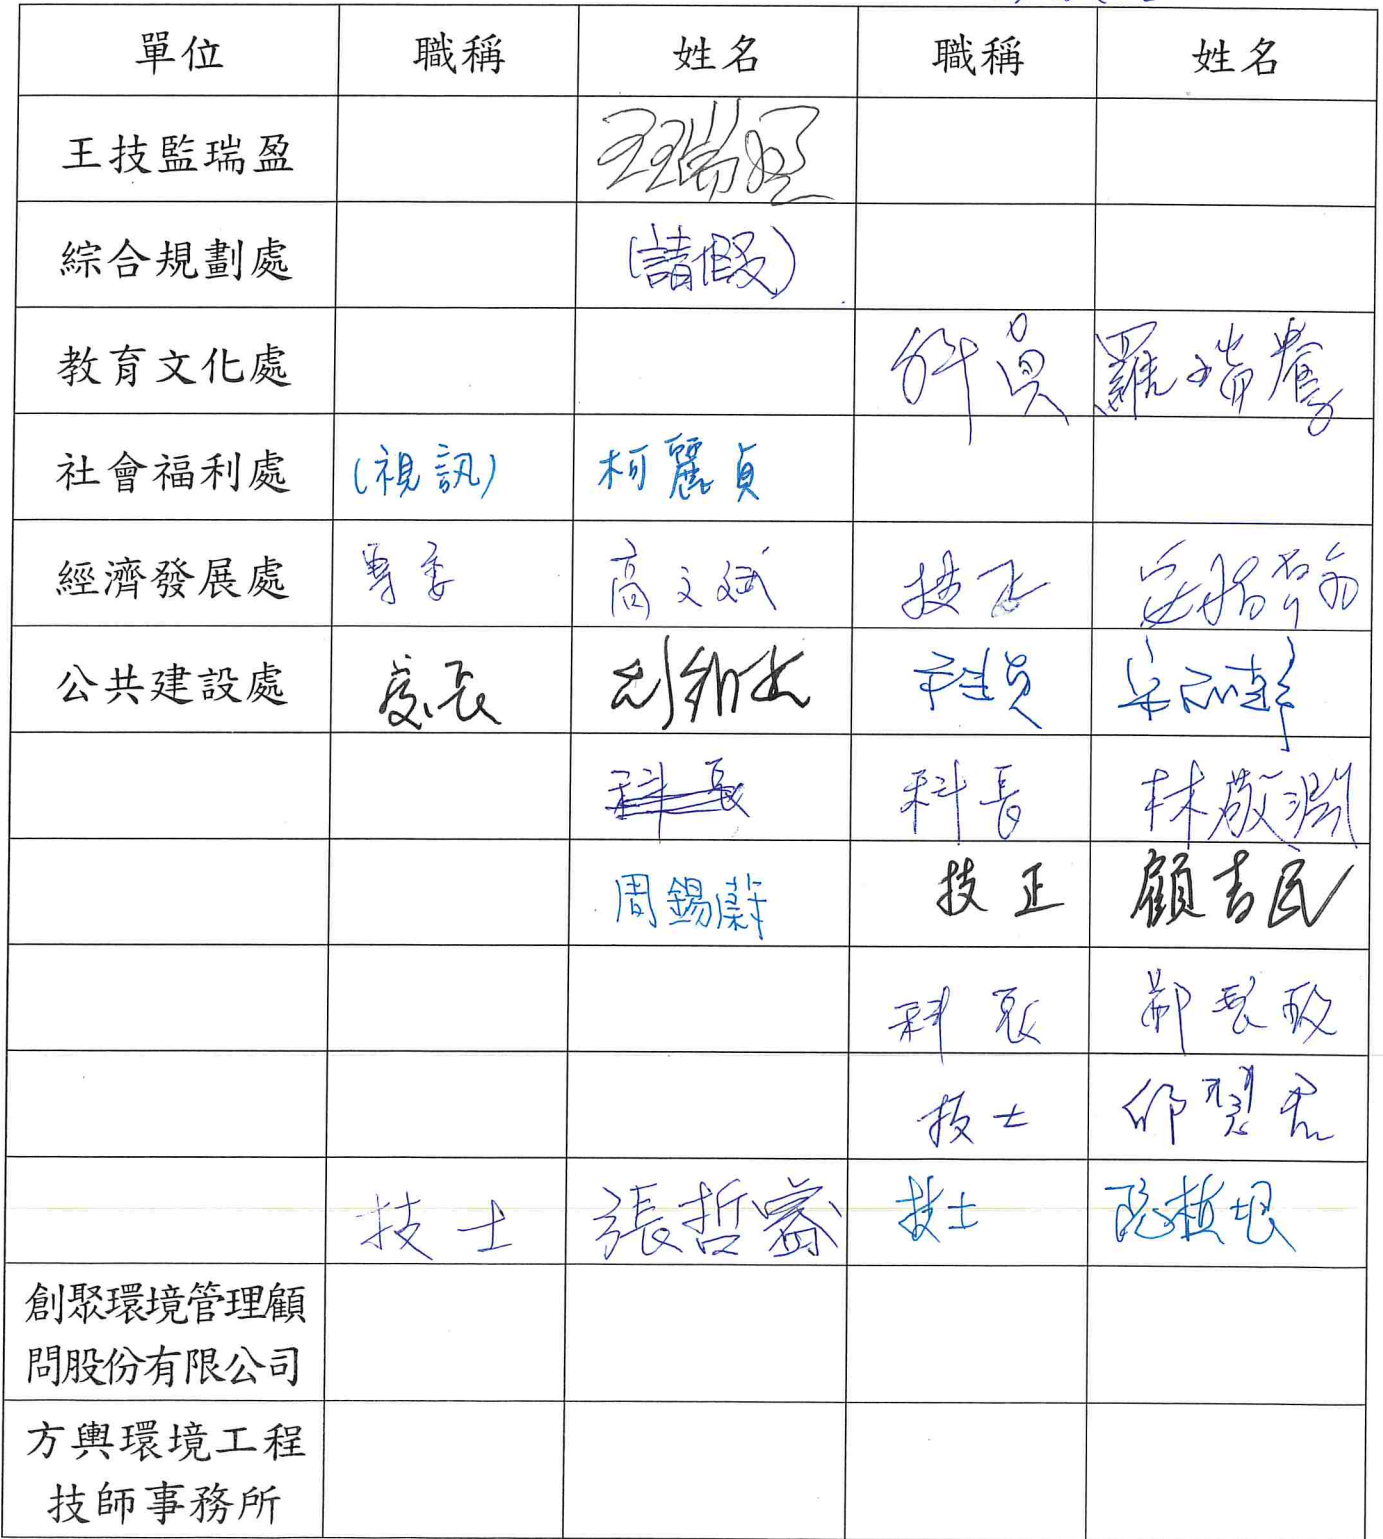 單位 職稱 姓名 職稱 姓名
王技監瑞盈 王瑞盈
綜合規劃處 (請假)
教育文化處 科員 羅瑞
社會福利處 (視訊) 柯麗貞
經濟發展處 專委 高文斌 技正
公共建設處 處長
科長 科長 林敬淵
周錫蔚 技正 顧吉民
科長
技士
技士 張哲睿 技士
創聚環境管理顧
問股份有限公司
方輿環境工程
技師事務所